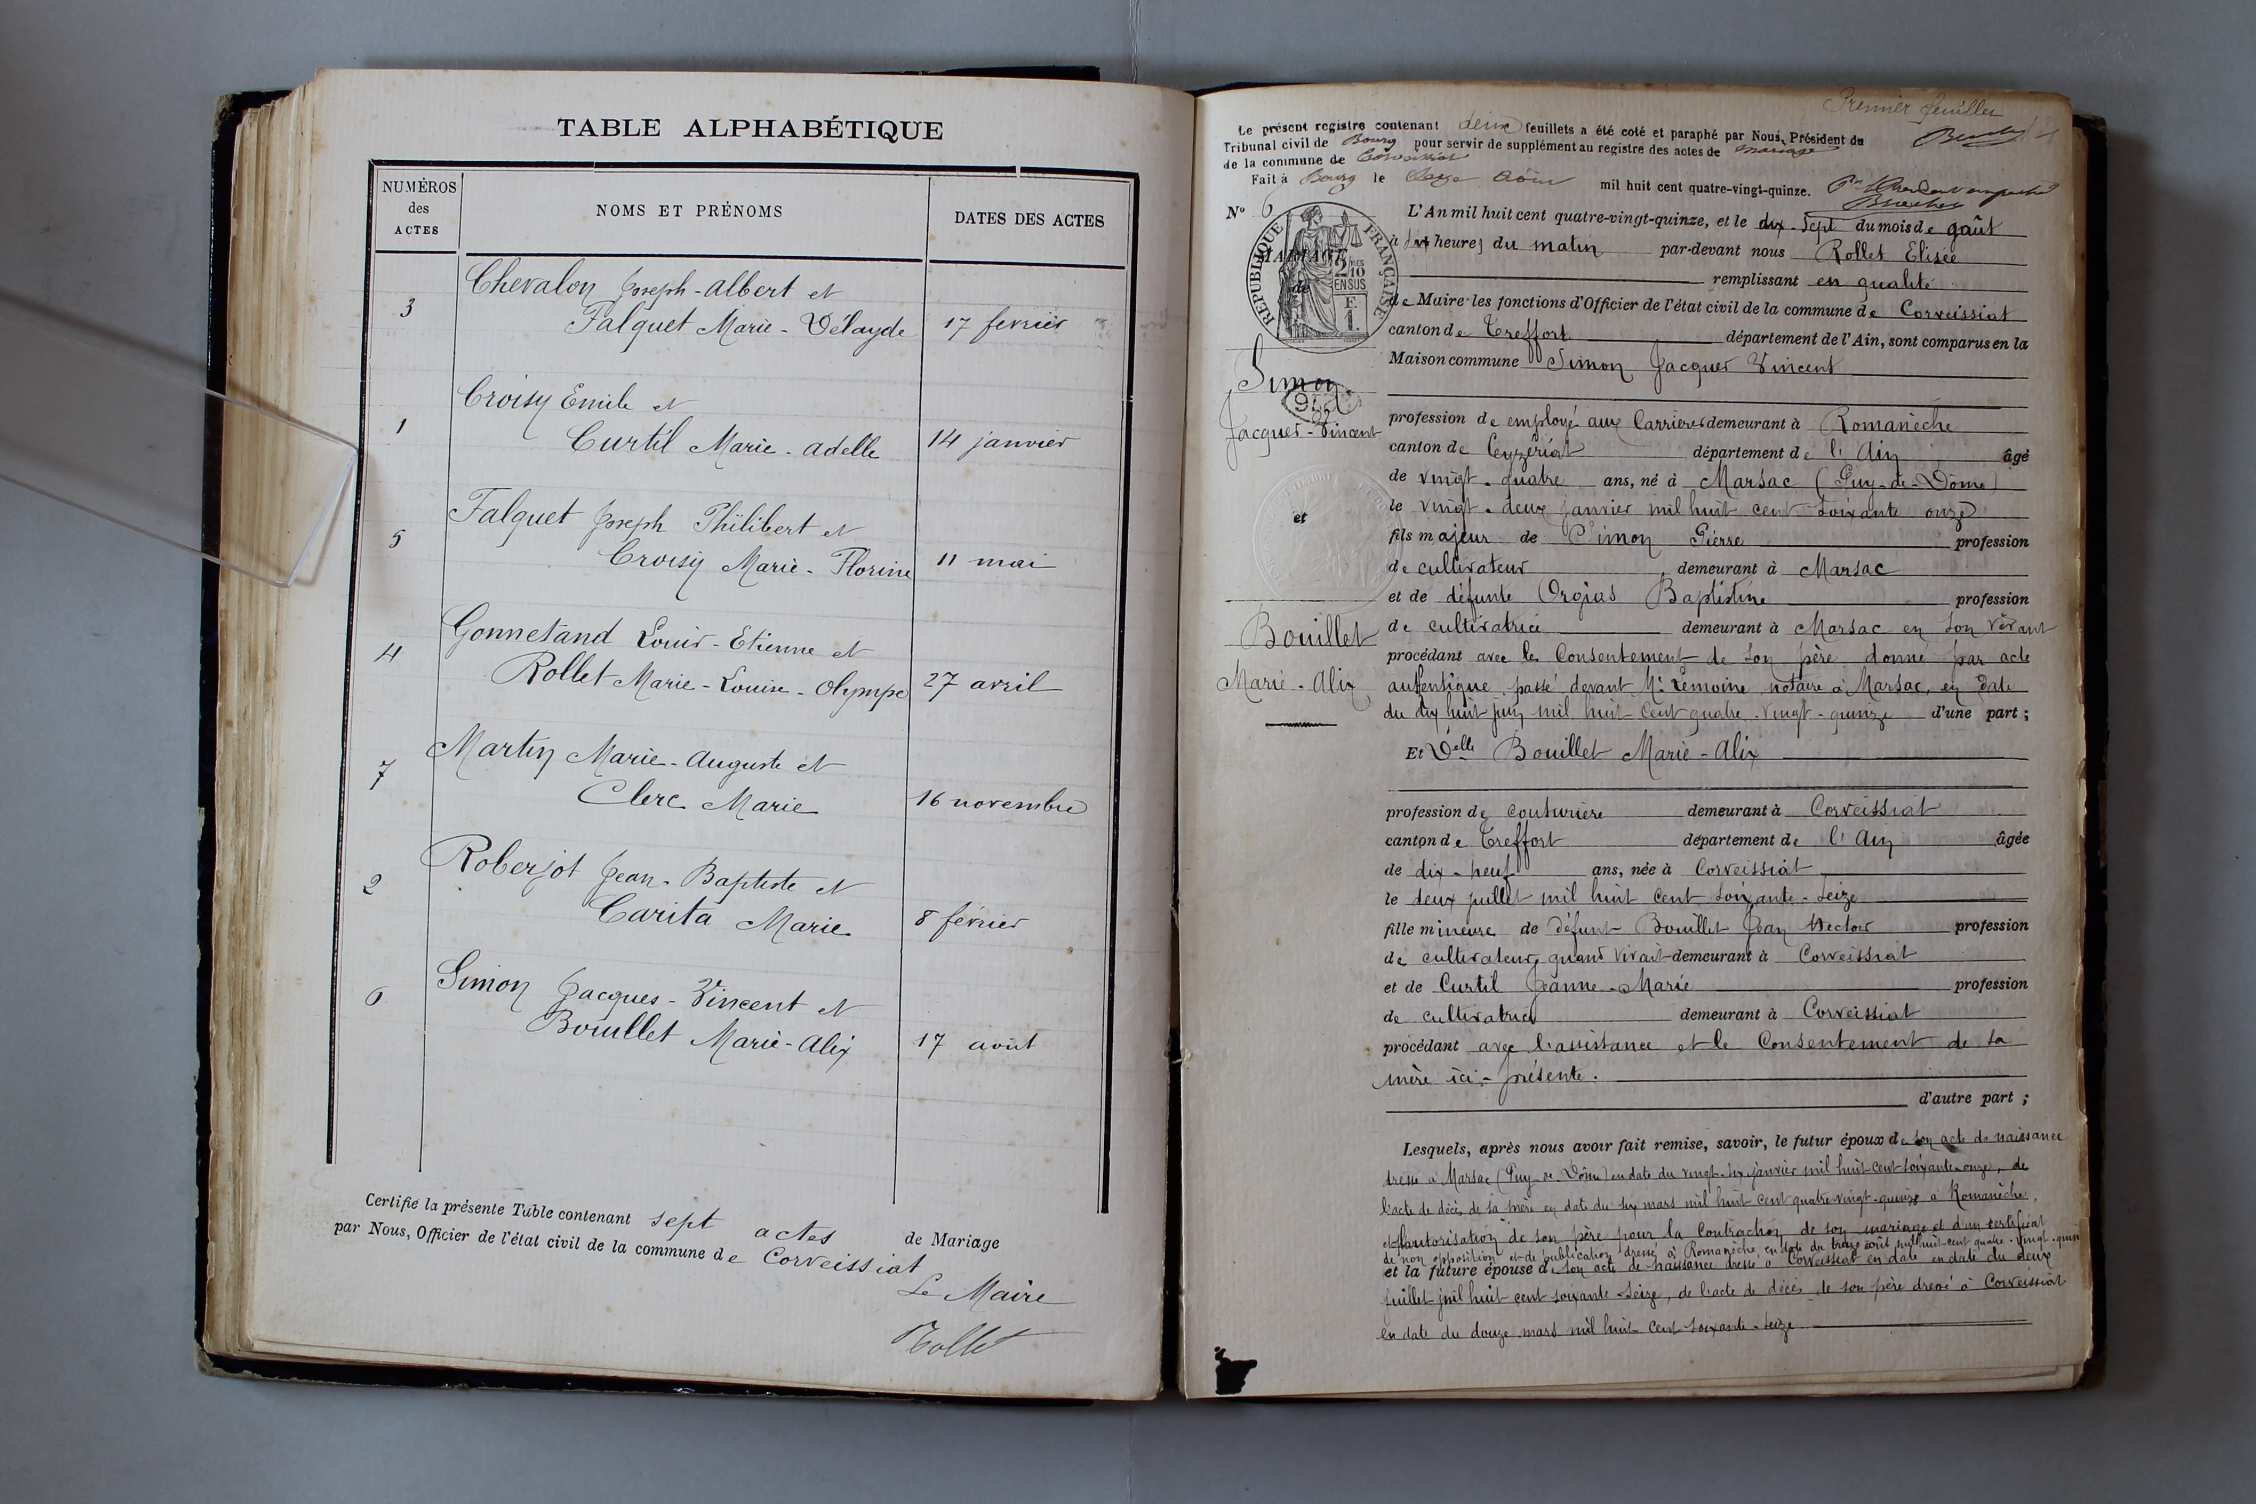 TABLE ALPHABÉTIQUE
NUMÉROS
des
ACTES
NOMS ET PRÉNOMS
DATES DES ACTES
3
Chevalon Joseph-Albert et
Falquet Marie-Délayde
17 fevrier
1
Croisy Emile et
Curtil Marie-Adelle
14 janvier
5
Falquet Joseph Philibert et
Croisy Marie-Florine
11 mai
4
Gonnetand Louis-Etienne et
Rollet Marie-Louise-Olympe
27 avril
7
Martin Marie-Auguste et
Clerc Marie
16 novembre
2
Roberjot Jean-Baptiste et
Carita Marie
8 février
6
Simon Jacques-Vincent et
Bouillet Marie-Alix
17 août
Certifié la présente Table contenant sept actes de Mariage
par Nous, Officier de l'état civil de la commune de Corveissiat
Le Maire
Rollet
Premier feuillet
Le présent registre contenant deux feuillets a été coté et paraphé par Nous, Président du
Tribunal civil de Bourg pour servir de supplément au registre des actes de mariage
de la commune de Corveissiat
Fait à Bourg le août mil huit cent quatre-vingt-quinze.
N° 6
MARIAGE
de
RÉPUBLIQUE FRANÇAISE
2/10 EN SUS
F. 1.
Simon
Jacques-Vincent
et
Bouillet
Marie-Alix
L'An mil huit cent quatre-vingt-quinze, et le dix-sept du mois de août
à heures du matin par-devant nous Rollet Elisée
remplissant en qualité
de Maire les fonctions d'Officier de l'état civil de la commune de Corveissiat
canton de Treffort département de l'Ain, sont comparus en la
Maison commune Simon Jacques Vincent
profession de employé aux Carrières demeurant à Romanèche
canton de Ceyzériat département de l'Ain âgé
de vingt-quatre ans, né à Marsac (Puy-de-Dôme)
le vingt-deux janvier mil huit cent soixante onze
fils majeur de Simon Pierre profession
de cultivateur demeurant à Marsac
et de défunte Orgias Baptistine profession
de cultivatrice demeurant à Marsac en son vivant
procédant avec le Consentement de son père donné par acte
autentique passé devant Me Lemoine notaire à Marsac, en date
du dix huit juin mil huit cent quatre-vingt-quinze d'une part;
Et Delle Bouillet Marie-Alix
profession de couturière demeurant à Corveissiat
canton de Treffort département de l'Ain âgée
de dix-neuf ans, née à Corveissiat
le deux juillet mil huit cent soixante-seize
fille mineure de défunt Bouillet Jean Hector profession
de cultivateur, quand vivait demeurant à Corveissiat
et de Curtil Jeanne-Marie profession
de cultivatrice demeurant à Corveissiat
procédant avec l'assistance et le Consentement de sa
mère ici-présente.
d'autre part;
Lesquels, après nous avoir fait remise, savoir, le futur époux de son acte de naissance
dressé à Marsac (Puy-de-Dôme) en date du vingt-six janvier mil huit cent soixante-onze, de
l'acte de décès de sa mère en date du six mars mil huit cent quatre-vingt-quinze à Romanèche,
et l'autorisation de son père pour la Contraction de son mariage et d'un certificat
de non opposition et de publication dressé à Romanèche, en date du treize août mil huit-cent quatre-vingt-quinze
et la future épouse de son acte de naissance dressé à Corveissiat en date en date du deux
juillet mil huit cent soixante-seize, de l'acte de décès de son père dressé à Corveissiat
en date du douze mars mil huit cent soixante-seize